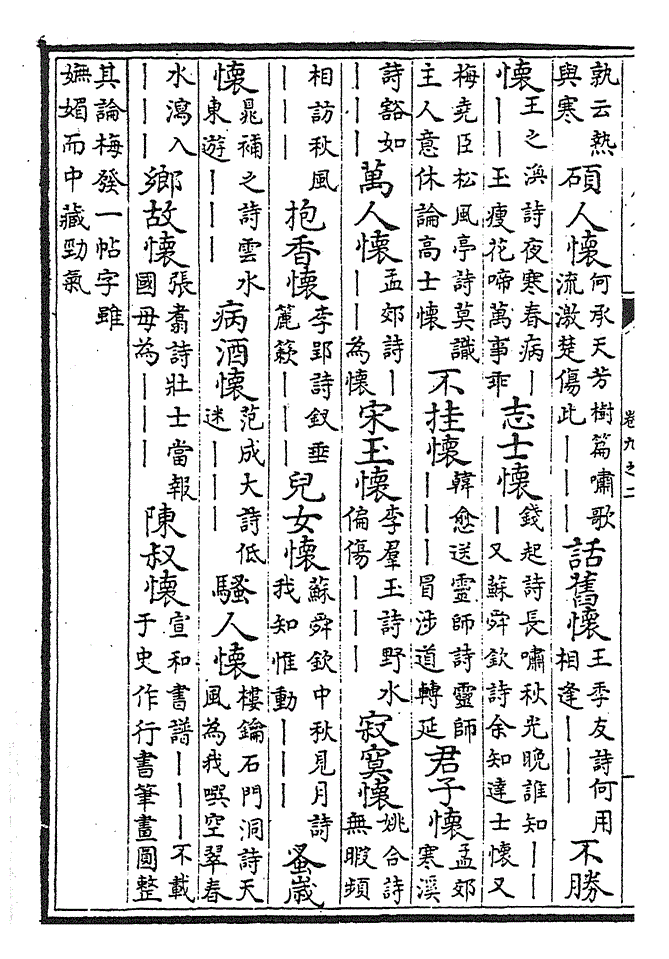 孰云熱與寒碩人懷何承天芳樹篇嘯歌流激楚傷此｜｜｜話舊懷王季友詩何用相逢｜｜｜不勝
懷王之渙詩夜寒春病｜｜｜玉瘦花啼萬事乖志士懷錢起詩長嘯秋光晚誰知｜｜｜又蘇舜欽詩余知達士懷又
梅堯臣松風亭詩莫識主人意休論高士懷不挂懷韓愈送靈師詩靈師｜｜｜冒涉道轉延君子懷孟郊寒溪
詩豁如｜｜｜萬人懷孟郊詩｜｜｜為懷宋玉懷李羣玉詩野水偏傷｜｜｜寂寞懷姚合詩無暇頻
相訪秋風｜｜｜抱香懷李郢詩釵垂簏簌｜｜｜兒女懷蘇舜欽中秋見月詩我知惟動｜｜｜蚤歲
懷晁補之詩雲水東遊｜｜｜病酒懷范成大詩低迷｜｜｜騷人懷樓鑰石門洞詩天風為我噀空翠春
水瀉入｜｜｜鄉故懷張翥詩壯士當報國毋為｜｜｜陳叔懷宣和書譜｜｜｜不載于史作行書筆畫圓整
其論梅發一帖字雖嫵媚而中藏勁氣
卷九之二